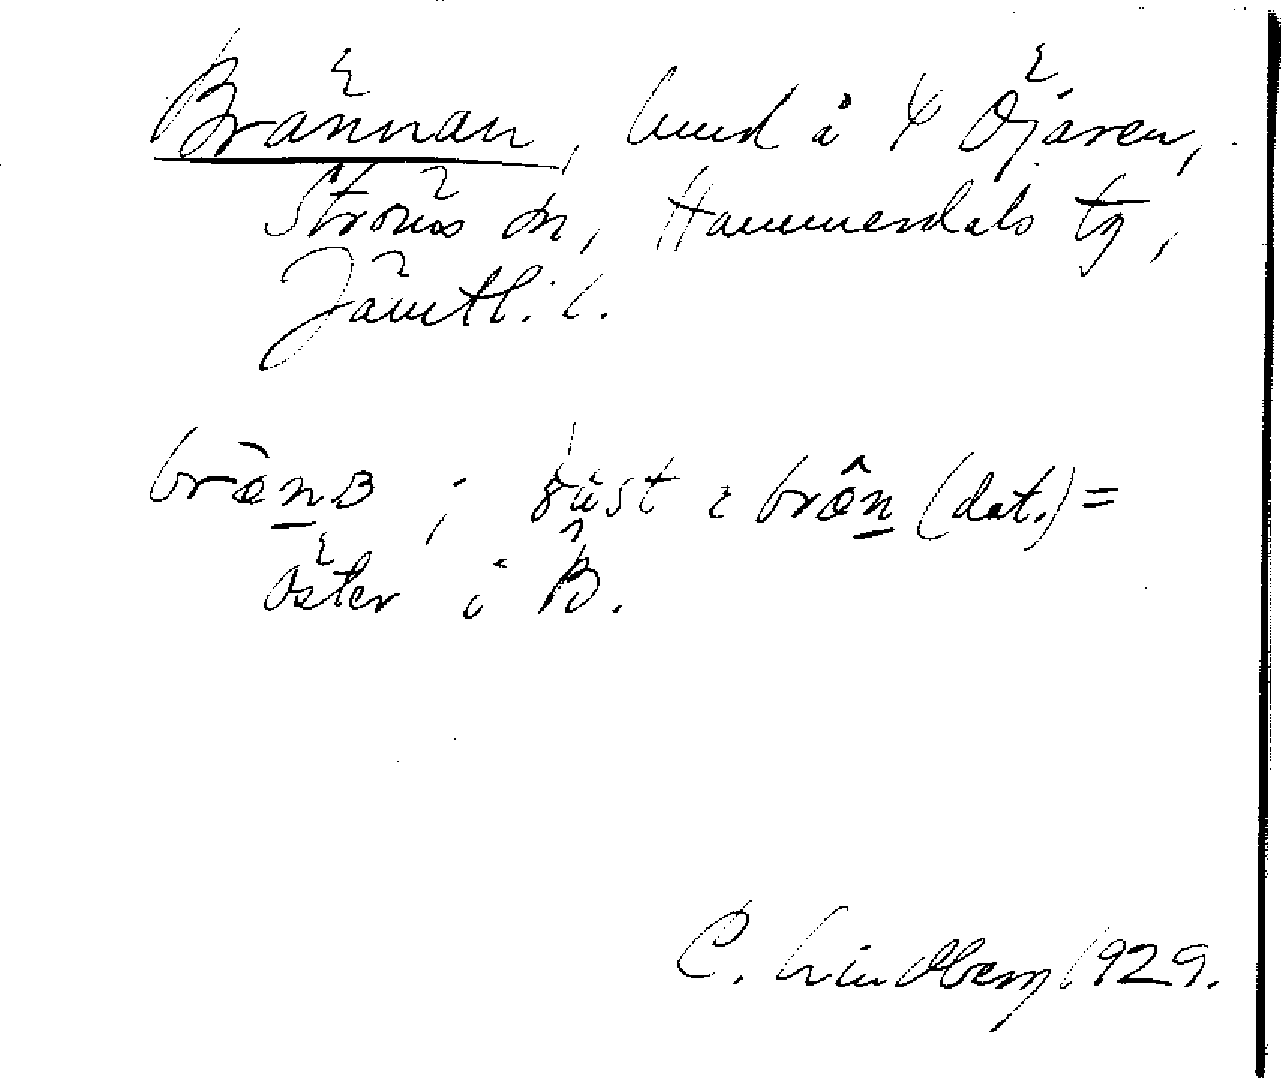 Brännan, lund å Öjaren,
Ströms sn, Hammerdals tg,
Jämtl. l.
bræ̀nɞ ; üst i bræ̂n (dat.) =
öster i B.
C. Lindberg 1929.